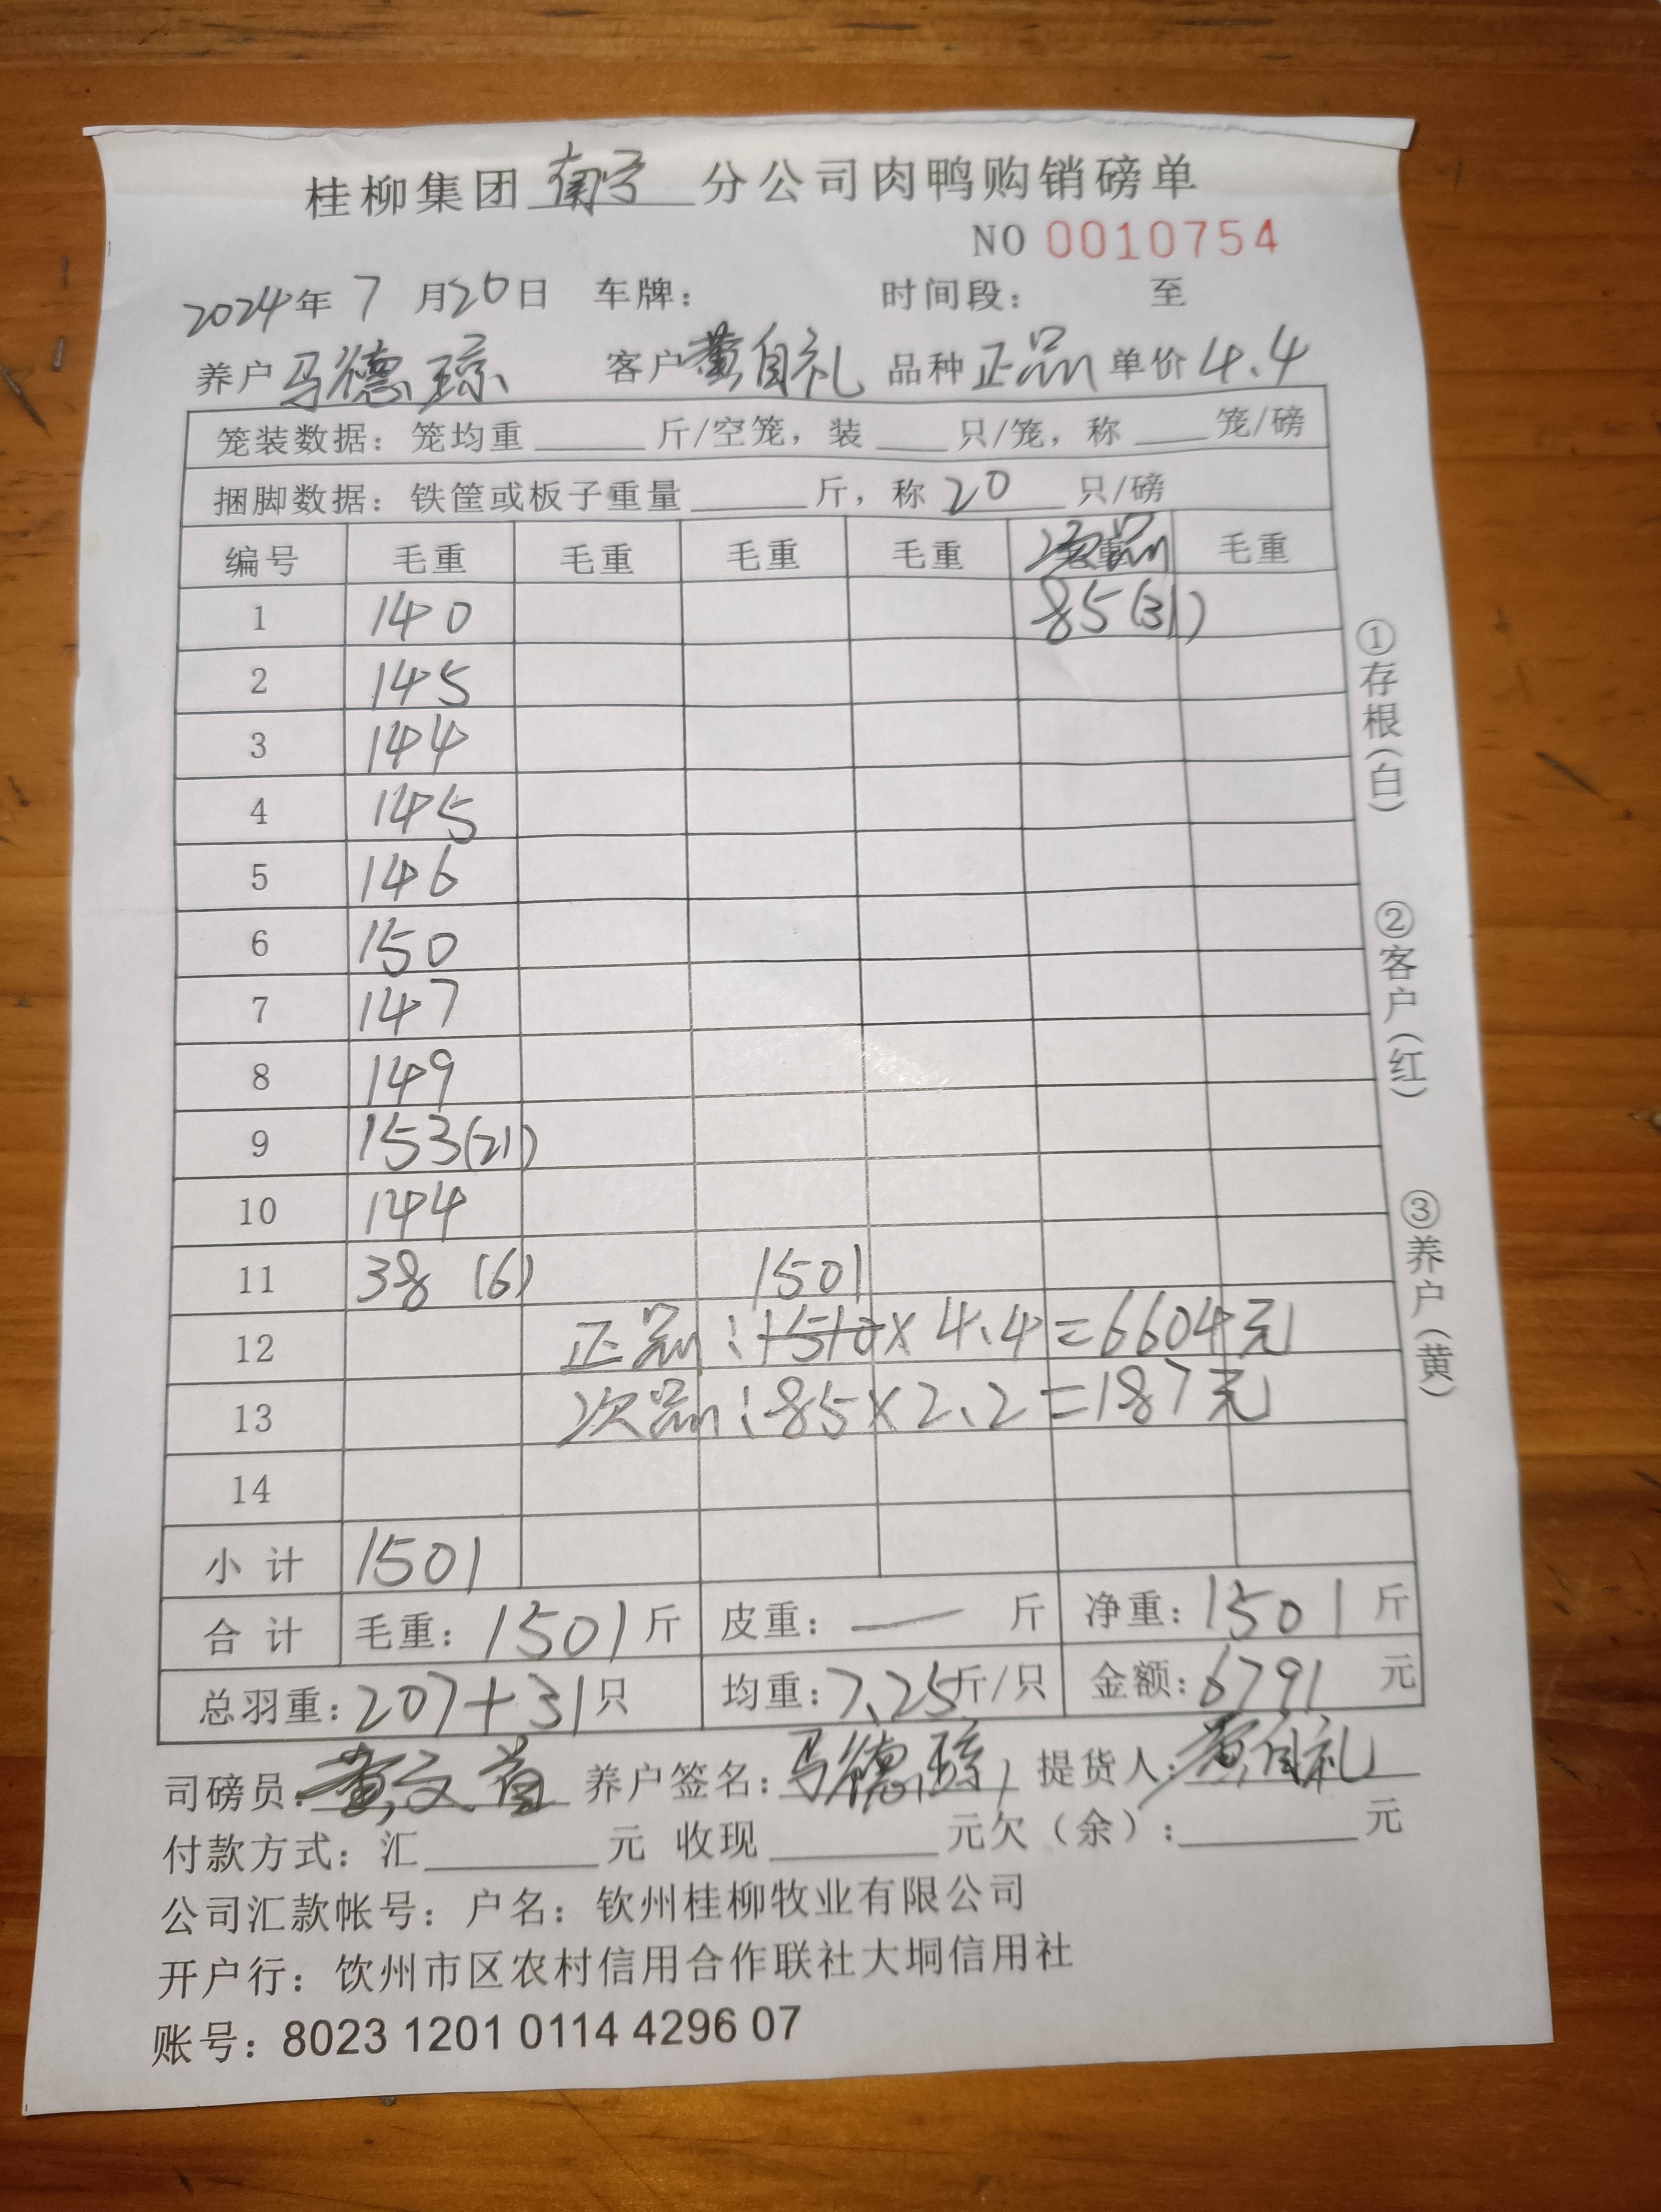 桂柳集团南宁分公司肉鸭购销磅单
NO 0010754
2024年 7 月20日 车牌: 时间段: 至
养户 马德琼 客户 黄自礼 品种 正品 单价 4.4
笼装数据: 笼均重 斤/空笼, 装 只/笼, 称 笼/磅
捆脚数据: 铁筐或板子重量 斤, 称 20 只/磅
编号 毛重 毛重 毛重 毛重 次品 毛重
1 140 85(31)
2 145
3 144
4 145
5 146
6 150
7 147
8 149
9 153(21)
10 144
11 38 (6) 1501
12 正品:1510×4.4=6604元
13 次品:85×2.2=187元
14
小 计 1501
合 计 毛重: 1501斤 皮重: — 斤 净重: 1501斤
总羽重: 207+31只 均重: 7.25斤/只 金额: 6791 元
司磅员: 黄文 养户签名: 马德琼 提货人: 黄自礼
付款方式: 汇 元 收现 元欠(余): 元
公司汇款帐号: 户名: 钦州桂柳牧业有限公司
开户行: 钦州市区农村信用合作联社大垌信用社
账号: 8023 1201 0114 4296 07
①存根(白)
②客户(红)
③养户(黄)